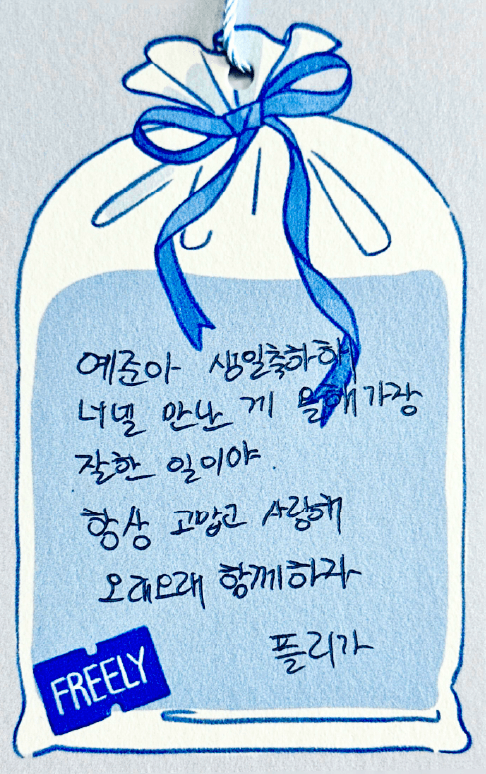 예준아 생일축하해
너넬 만난 게 올해 가장
잘한 일이야
항상 고맙고 사랑해
오래오래 함께하자
플리가
FREELY